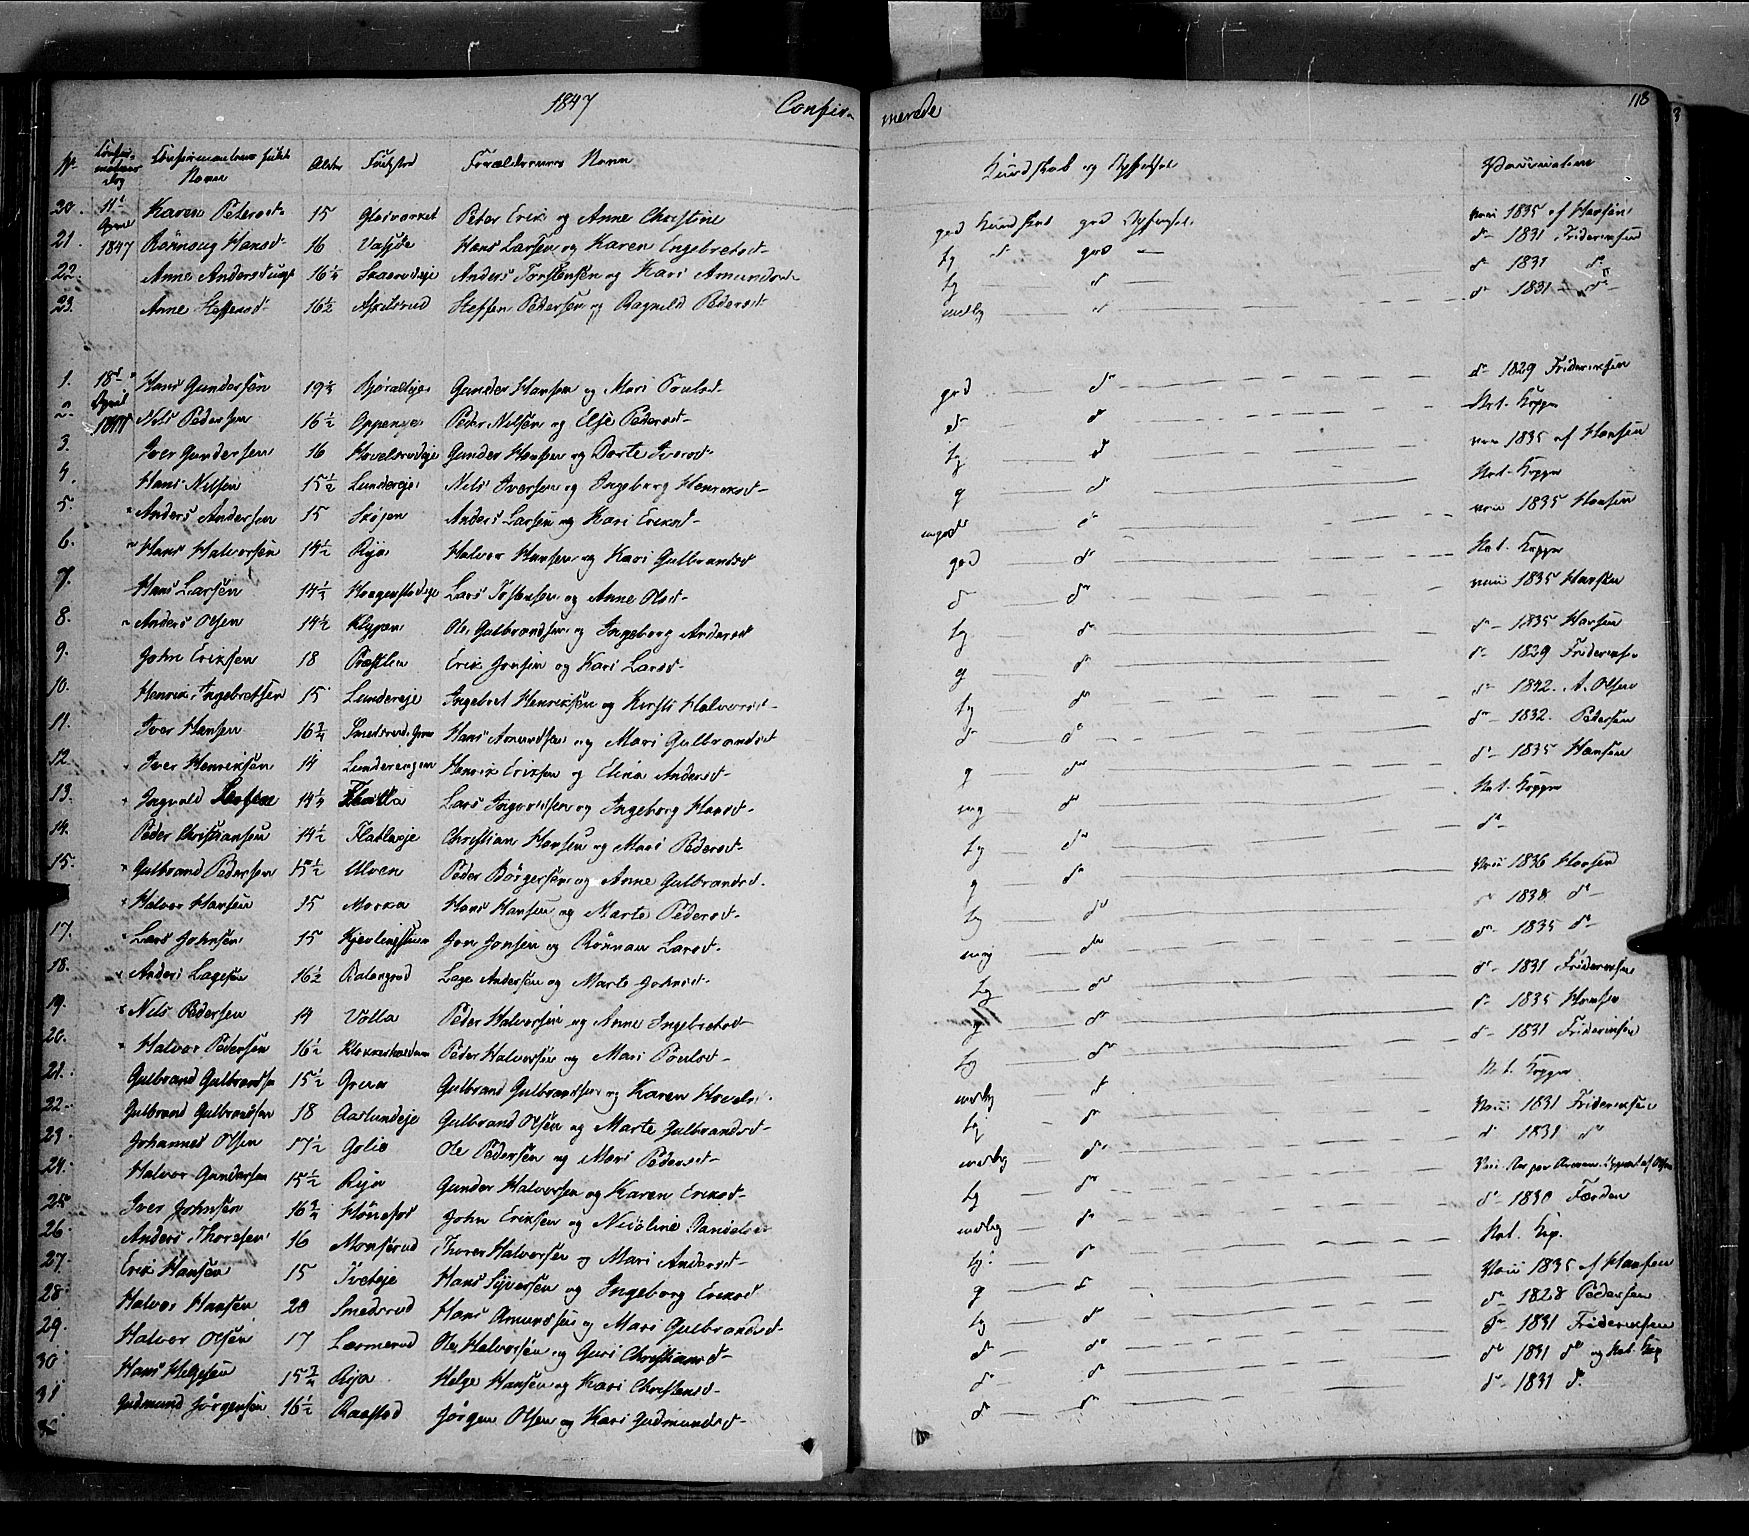 1847 Confir- merede 118
No Confirmations Dag Confirmantens fulde Navn Alder Fødested Forældrenes Navn Kundskab og Opførsel Vaccination
20. 11te April 1847 Karen Petersd. 15 Glasværket Peter Erik og Anne Christine god Kundskab god Opførsel vac 1835 af Hansen
21. Rønnaug Hansd- 16 Hans Larsen og Karen Engebretsd- tg d- god — d- 1831 Frideriksen
22. Anne Andersd 16 Anders Torstensen og Kari Amundsd- tg d d- 1831 d-
23. Anne Steffensd- 16½ Steffen Pedersen og Ragnild Pedersd- d d- 1831 d-
1. 18de April 1847 Hans Gundersen Gunder Hansen og Mari Poulsd- god d- d- 1829 Frideriksen
2. Nils Pedersen 16½ Oppeneje Peder Nilsen og Else Pedersd- d- d Nat. Kopper
3. Iver Gundersen 16 Hovelsrudeje Gunder Hansen og Dorte Iversd- tg d vac 1835 af Hansen
4. Hans Nilsen 15½ Lundereje Nils Iversen og Ingeborg Henriksd- g d Nat. Kopper
5. Anders Andersen 15 Skøjen Anders Larsen og Kari Eriksd- d- vac 1835 Hansen
6. Hans Halvorsen 14½ Rya Halvor Hansen og Kari Gulbrandsd god d- Nat. Kopper
7. Hans Larsen Lars og Anne Olsd- d d- vac 1835 Hansen
8. Anders Olsen 14½ Klypen Ole Gulbrandsen og Ingeborg Andersd tg d d- 1835 Hansen
9. John Eriksen 18 Præstlien Erik Jonsen og Kari Larsd- g d d- 1829 Frideriksen
10. Henrik Ingebretsen 15 Lundereje Ingebret Henriksen og Kirsti Halvorsd- tg d d- 1842. A. Olsen
11. Iver Hansen 16¾ Hans Amundsen og Mari Gulbrandsd d- d d- 1832. Pedersen
12. Iver Henriksen 14 Henrik Eriksen og Eline Andersd- g d- d- 1835 Hansen
13. Ingvald Flatla Lars Ingvaldsen og Ingeborg Hansd- mg d- Nat. Kopper
14. Peder Christiansen 14½ Flatlaeje Christian Hansen og Mari Pedersd- tg d- d-
15. Gulbrand Pedersen 15½ Ulven Peder Børgersen og Anne Gulbrandsd. g d- Vac 1836 Hansen
Halvor Hansen 15 Moska Hans Hansen og Marte Pedersd- tg d- d 1838 d-
17. Lars Johnsen 15 Jon Jonsen og Rønnau Larsd- d- d- 1835 d-
18. Anders Lagesen 16½ Lage Andersen og Marte Johnsd- tg d- d- 1831 Frideriksen
19. Nils Pedersen 14 Volla Peder Halvorsen og Anne Ingebretsd- d- d- 1835 Hansen
20. Halvor Pedersen 16½ Peder Halvorsen og Mari Poulsd- tg d- d- 1831 Frideriksen
21. Gulbrand Gulbrandsen 15½ Grua Gulbrand Gulbrandsen og Karen d Nat. Kopper
22. Gulbrand Gulbrandsen 18 Aaslundeje Gulbrand Olsen og Marte Gulbrandsd- tg d Vac 1831 Frideriksen
23 Johannes Olsen 17½ Golie Ole Pedersen og Mari Pedersd- d- d 1831 d-
24. Halvor Gundersen 15½ Rya Gunder Halvorsen og Karen Eriksd- tg d- Vac
25 Iver Johnsen 16¾ Hønefos John Eriksen og Nicoline d d- 1830 Færden
26 Anders Thoresen 16 Monserud Thorer Halvorsen og Mari Andersd- tg. d Nat. Kop.
27. Erik Hansen 15 Tveteje Hans Syversen og Ingeborg Eriksd g d Vac 1835 af Hansen
28. Halvor Hansen 20 Smedsrud Hans Amundsen og Mari Gulbrandsd- tg d d- 1828 Pedersen
29. Halvor Olsen 17 Lærmerud Ole Halvorsen og Guri Christiansd- d- d- d- 1831 Frideriksen
30 Hans Helgesen 15¾ Rya Helge Hansen og Kari Christensd- d- d d- 1831 d- og Nat. Kop
31 Gudmund Jørgensen 16½ Raastad Jørgen Olsen og Kari Gudmundsd- d d d- 1831 d.